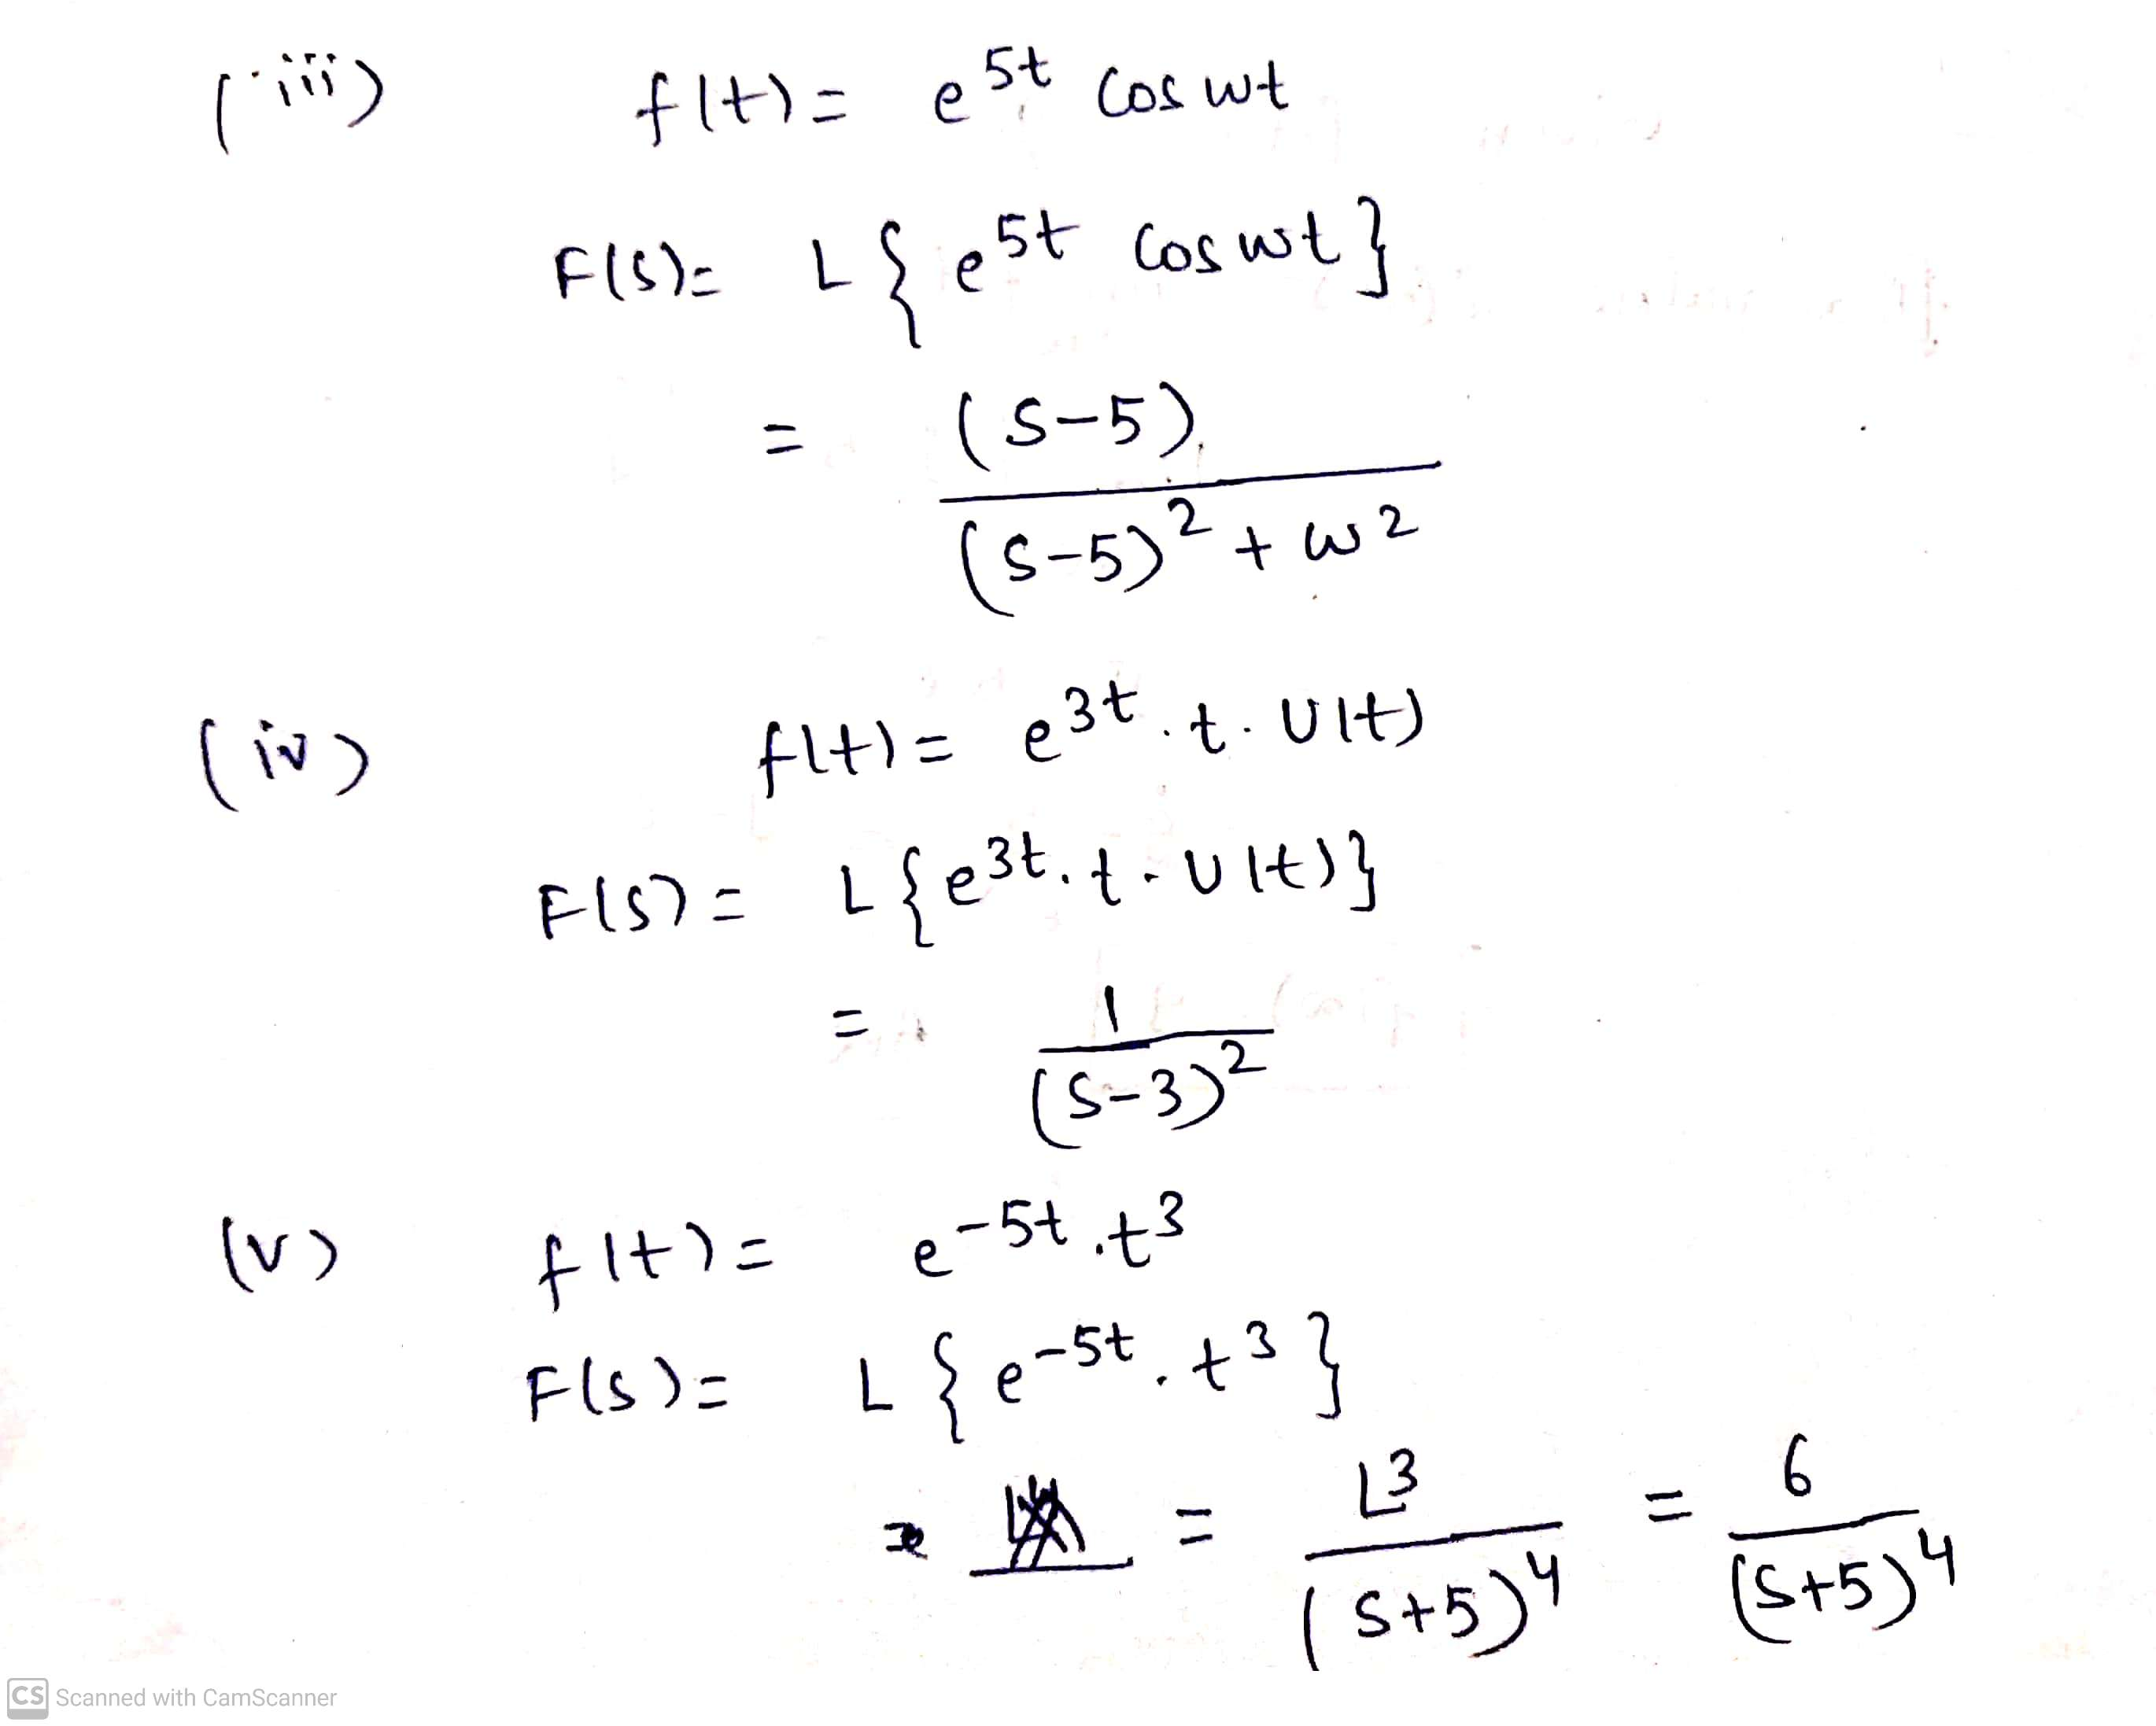 (iii) f(t) = e^5t cos wt
F(s) = L{e^5t cos wt}
= (s-5) / ((s-5)^2 + w^2)
(iv) f(t) = e^3t . t . U(t)
F(s) = L{e^3t . t . U(t)}
= 1 / (s-3)^2
(v) f(t) = e^-5t . t^3
F(s) = L{e^-5t . t^3}
= = L3 / (s+5)^4 = 6 / (s+5)^4
CS Scanned with CamScanner